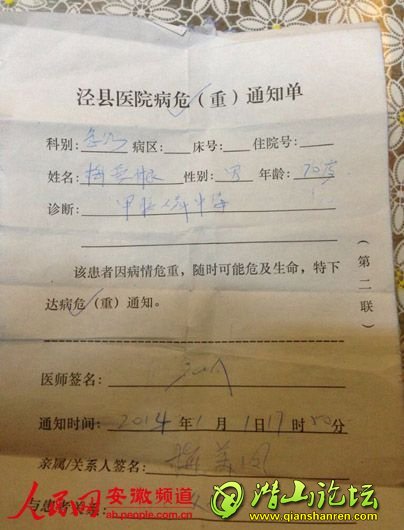 泾县医院病危（重）通知单
科别：急诊 病区： 床号： 住院号：
姓名： 性别：男 年龄：70岁
诊断：甲胺磷中毒
（第二联）
该患者因病情危重，随时可能危及生命，特下
达病危（重）通知。
医师签名：
通知时间：2014年1月1日17时50分
亲属/关系人签名：
与患者关系：
人民网 安徽频道
ah.people.com.cn
潜山论坛
www.qianshanren.com